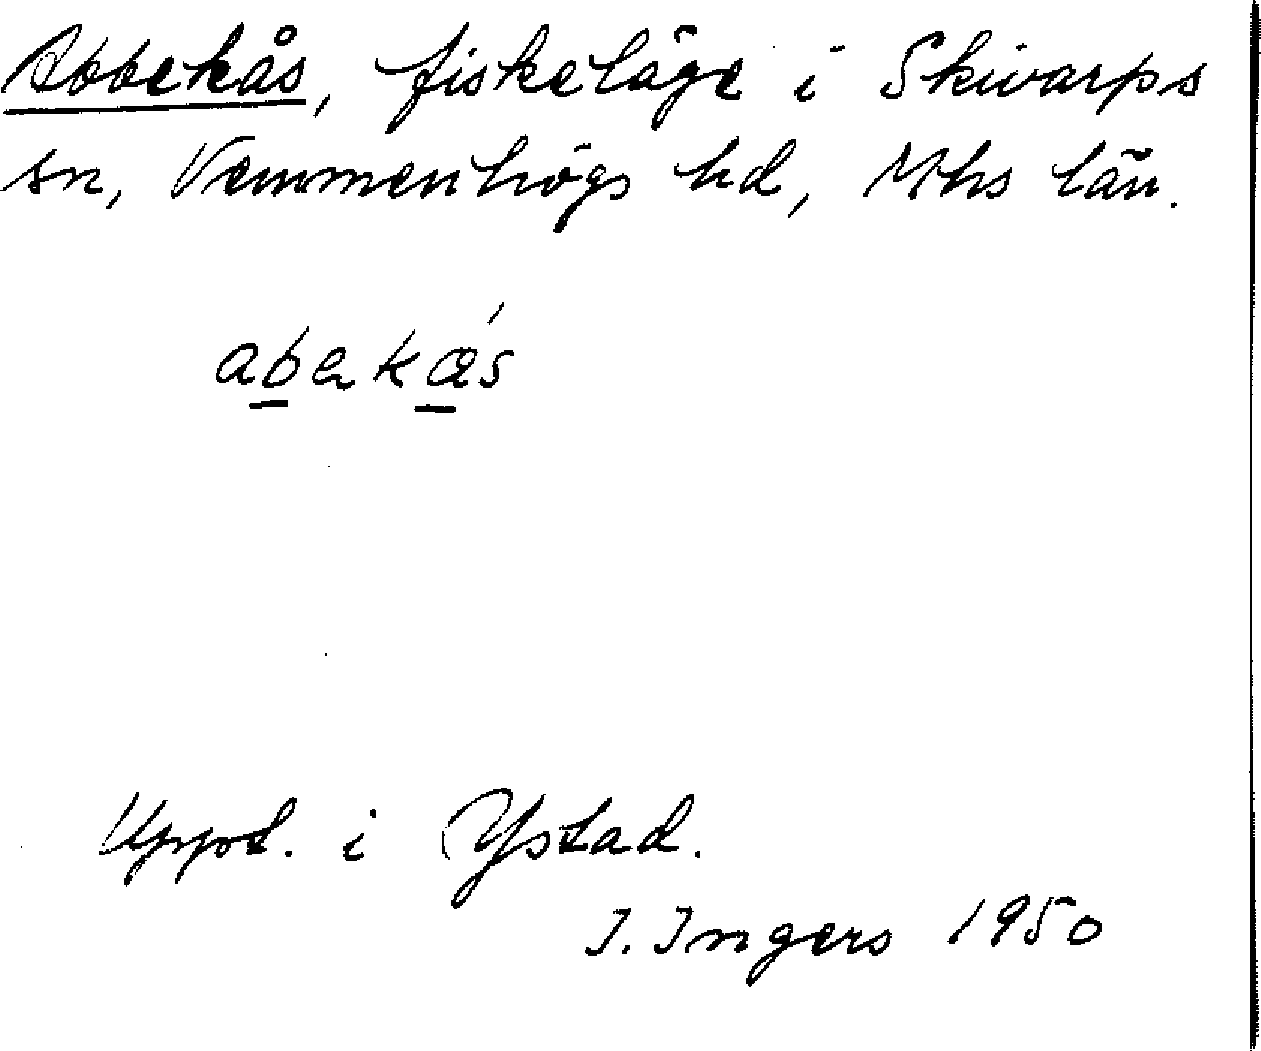 Abbekås, fiskeläge i Skivarps
sn, Vemmenhögs hd, Mhs län.
abekǽs
Uppt. i Ystad.
I. Ingers 1950